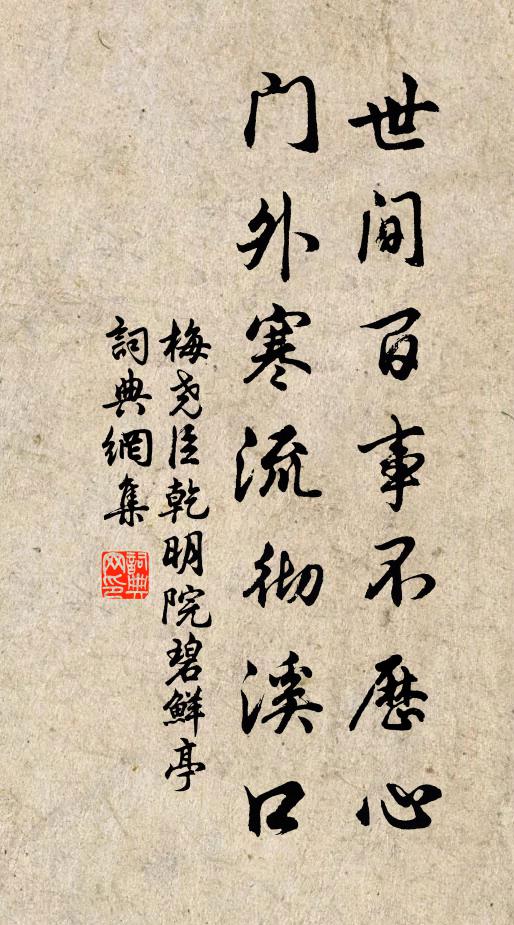 世间百事不歷心
门外寒流彻溪口
梅尧臣乾明院碧鮮亭
詞典網集
詞典
网印